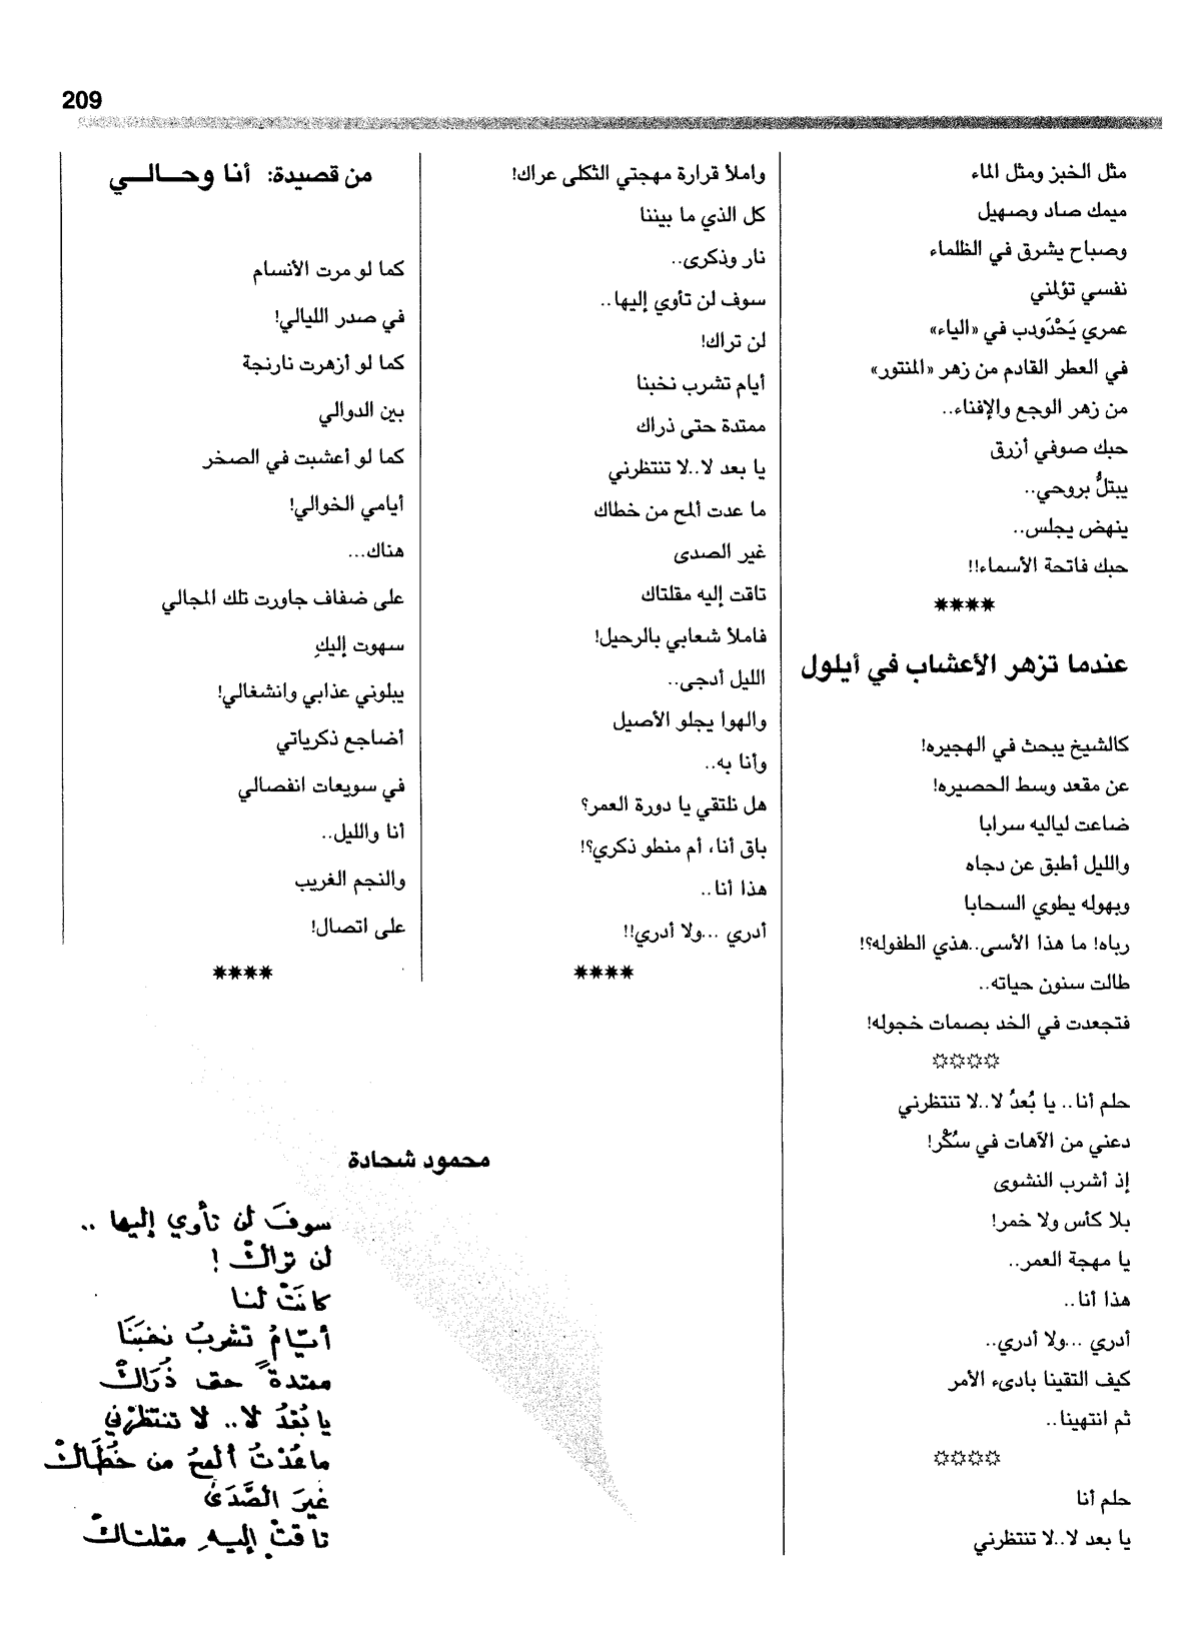 209
مثل الخبز ومثل الماء
ميمك صاد وصهيل
وصباح يشرق في الظلماء
نفسي تؤلمني
عمري يَحْدَودب في «الياء»
في العطر القادم من زهر «المنتور»
من زهر الوجع والإفناء..
حبك صوفي أزرق
يبتلُّ بروحي..
ينهض يجلس..
حبك فاتحة الأسماء!!
****
عندما تزهر الأعشاب في أيلول
كالشيخ يبحث في الهجيره!
عن مقعد وسط الحصيره!
ضاعت لياليه سرابا
والليل أطبق عن دجاه
وبهوله يطوي السحابا
رباه! ما هذا الأسى..هذي الطفوله؟!
طالت سنون حياته..
فتجعدت في الخد بصمات خجوله!
☼☼☼☼
حلم أنا.. يا بُعدُ لا..لا تنتظرني
دعني من الآهات في سُكْر!
إذ أشرب النشوى
بلا كأس ولا خمر!
يا مهجة العمر..
هذا أنا..
أدري ...ولا أدري..
كيف التقينا بادىء الأمر
ثم انتهينا..
☼☼☼☼
حلم أنا
يا بعد لا..لا تنتظرني
واملأ قرارة مهجتي الثكلى عراك!
كل الذي ما بيننا
نار وذكرى..
سوف لن تأوي إليها..
لن تراك!
أيام تشرب نخبنا
ممتدة حتى ذراك
يا بعد لا..لا تنتظرني
ما عدت ألمح من خطاك
غير الصدى
تاقت إليه مقلتاك
فاملأ شعابي بالرحيل!
الليل أدجى..
والهوا يجلو الأصيل
وأنا به..
هل نلتقي يا دورة العمر؟
باق أنا، أم منطو ذكري؟!
هذا أنا..
أدري ...ولا أدري!!
****
من قصيدة: أنا وحـــالـــي
كما لو مرت الأنسام
في صدر الليالي!
كما لو أزهرت نارنجة
بين الدوالي
كما لو أعشبت في الصخر
أيامي الخوالي!
هناك...
على ضفاف جاورت تلك المجالي
سهوت إليكِ
يبلوني عذابي وانشغالي!
أضاجع ذكرياتي
في سويعات انفصالي
أنا والليل..
والنجم الغريب
على اتصال!
****
محمود شحادة
سوفَ لن تأوي إليها ..
لن تراكْ !
كانَتْ لنا
أيّامُ تشربُ نخبَنَا
ممتدةً حتى ذُرَاكْ
يا بُعْدُ لا.. لا تنتظرْني
ما عُدْتُ ألمحُ من خُطَاكْ
غيرَ الصَّدَىْ
تاقتْ إليهِ مقلتاكْ